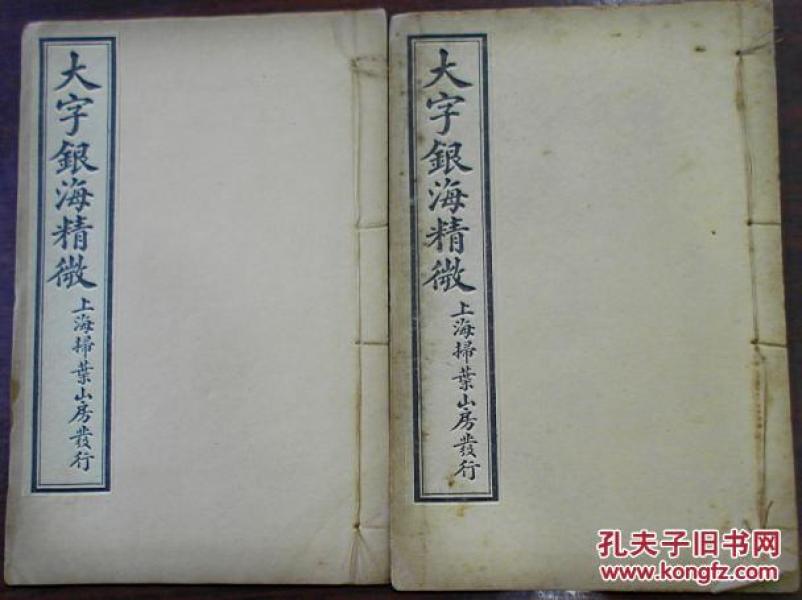 大字銀海精微
上海掃葉山房發行
大字銀海精微
上海掃葉山房發行
孔夫子旧书网
www.kongfz.com